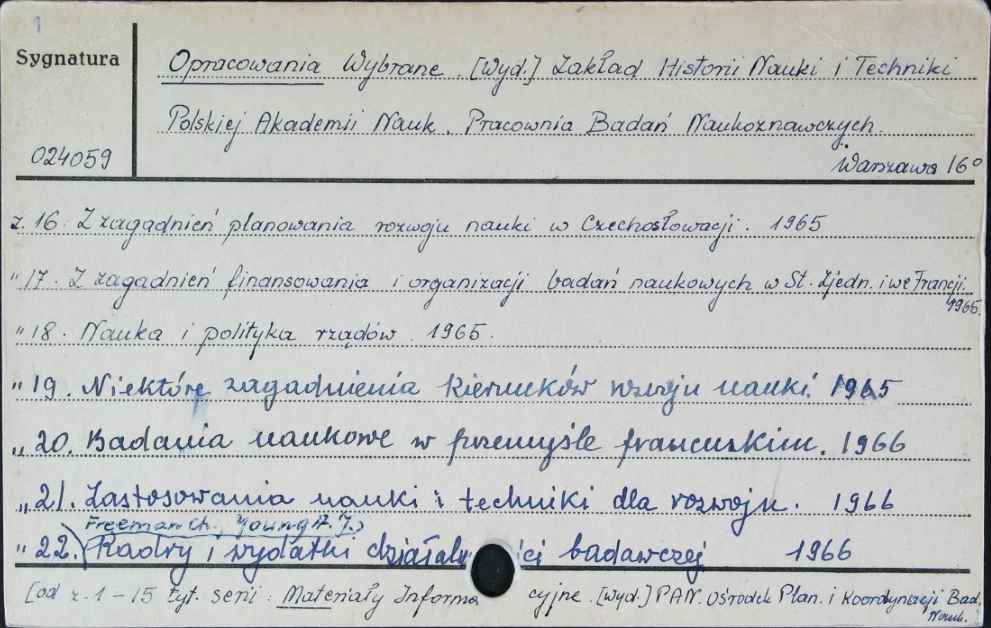 1
Sygnatura
Opracowania Wybrane. [Wyd.] Zakład Historii Nauki i Techniki
Polskiej Akademii Nauk. Pracownia Badań Naukoznawczych.
024059
Warszawa 16°
z. 16. Z zagadnień planowania rozwoju nauki w Czechosłowacji. 1965
" 17. Z zagadnień finansowania i organizacji badań naukowych w St. Zjedn. i we Francji.
1965.
" 18. Nauka i polityka rządów 1965.
" 19. Niektóre zagadnienia kierunków rozwoju nauki. 1965
" 20. Badania naukowe w przemyśle francuskim. 1966
" 21. Zastosowania nauki i techniki dla rozwoju. 1966
Freeman Ch., Young A. J.
" 22. Kadry i wydatki działalności badawczej 1966
[od z. 1-15 tyt. serii: Materiały Informacyjne. [Wyd.] PAN. Ośrodek Plan. i Koordynacji Bad.
Nauk.